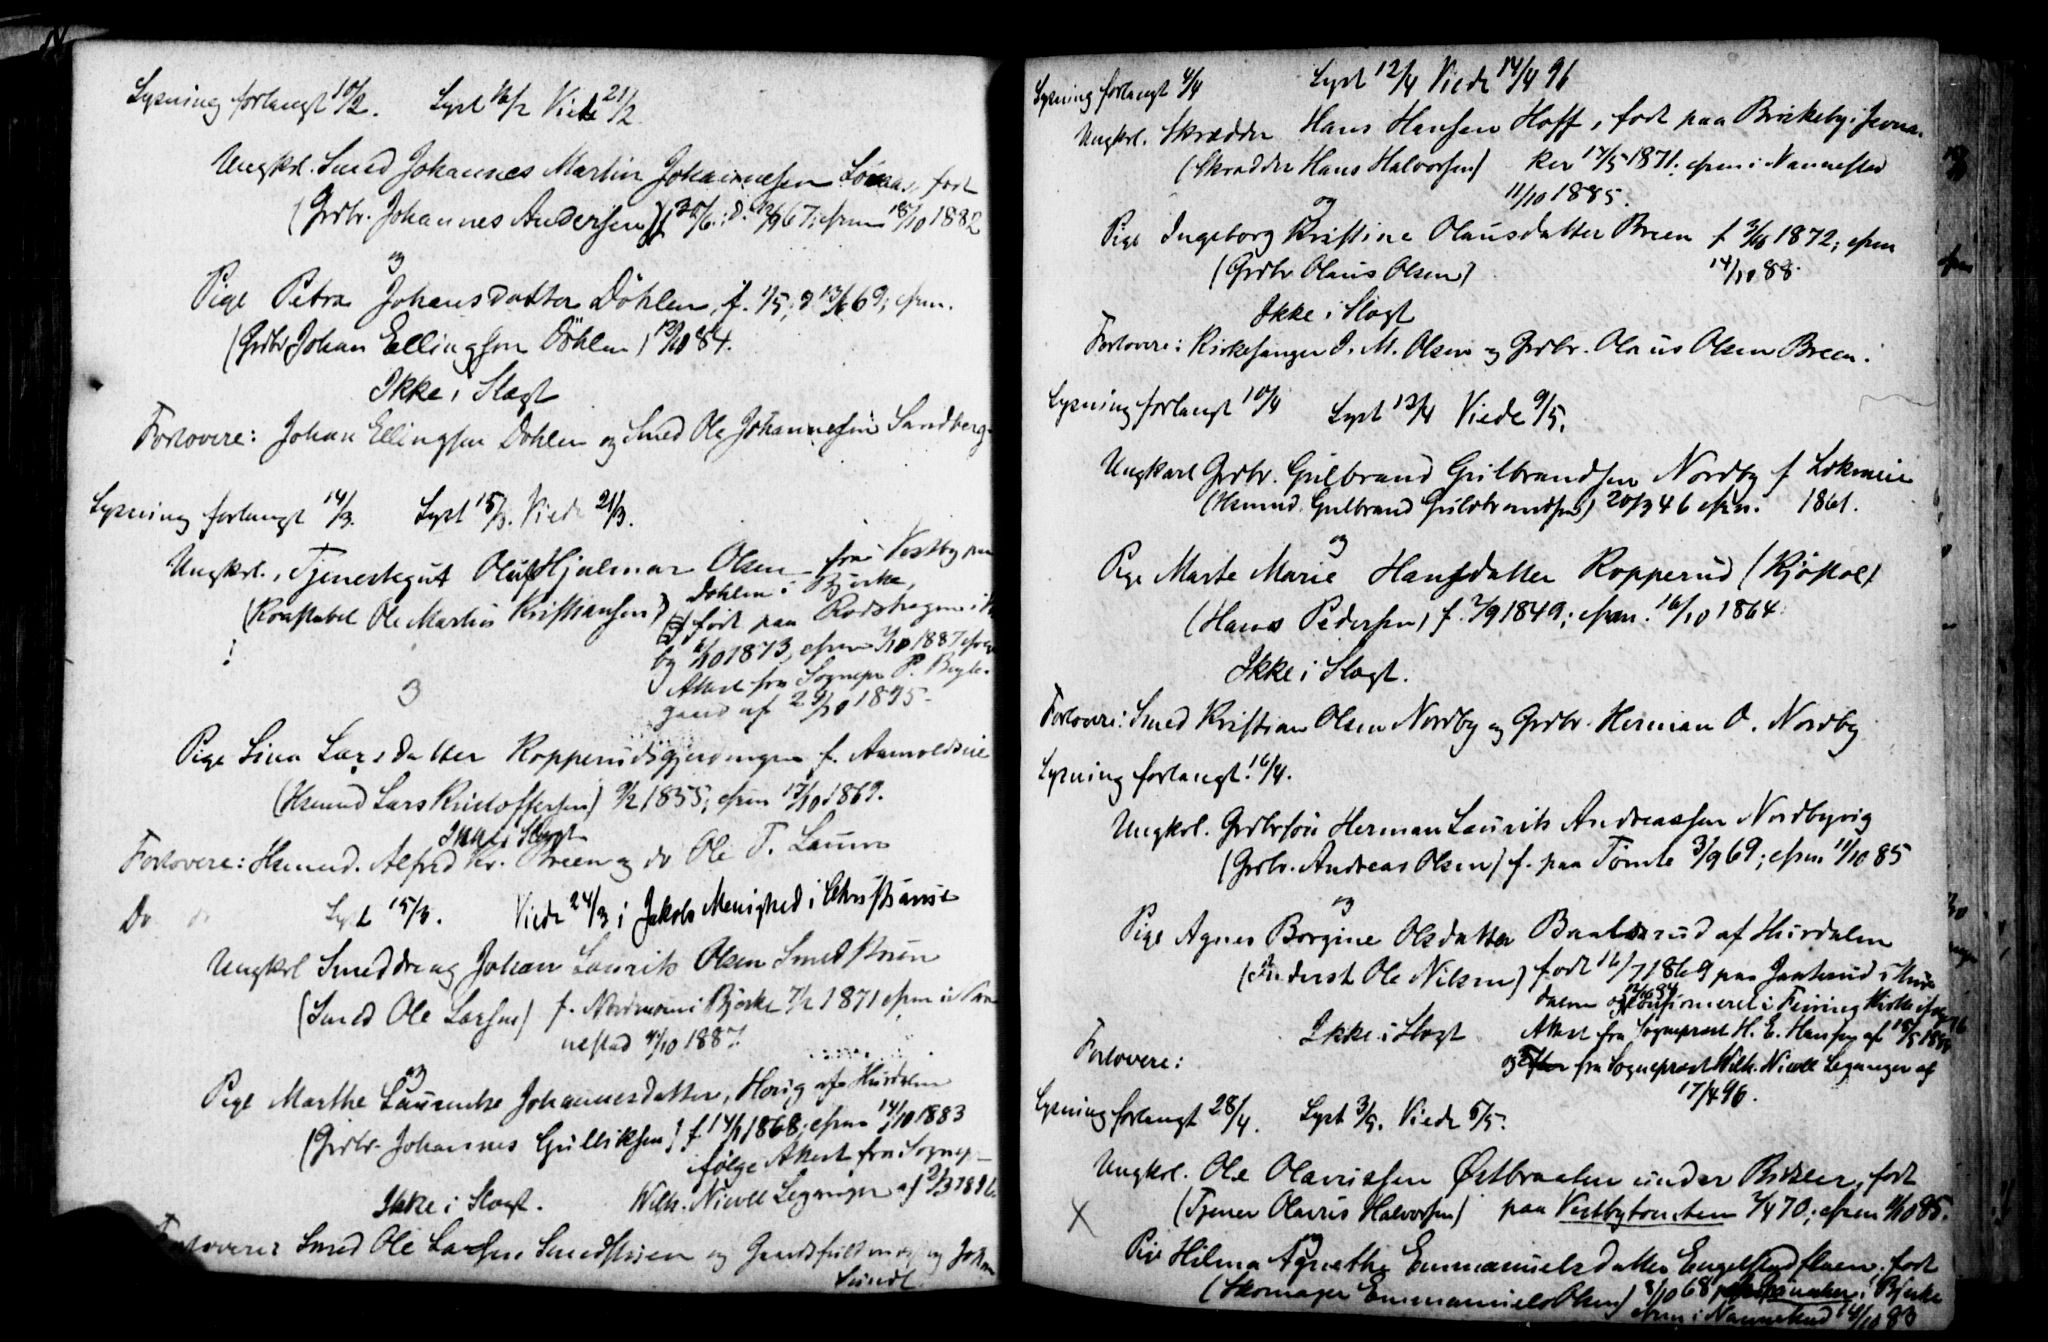 Lysning forlangt 10/2. Lyst 16/2 Viede 21/2
Ungkrl. Smed Johannes Martin Johannesen født
(Grdbr. Johannes Andersen) 30/6; d. 67; cfrm 18/10 1882
og
Pige Petra Johansdatter Döhlen, f. 1/5; d. 13/6 69; cfrm.
(Grdbr. Johan Ellingsen Döhlen) 12/10 84.
Ikke i Slægt
Forlovere: Johan Ellingsen Dohlen og Smed Ole Johannesen Sandberg
Lysning forlangt 14/3. Lyst 15/3. Viede 21/3.
Ungkrl., Tjenestegut Oluf Hjalmar Olsen fra Vestby
Dohlen i Bjerke,
(Konstabel Ole Martin Kristiansen) født paa
by 1873, cfrm 1887
Attest fra Sognepr. P.
gaard af 29/10 1895.
og
Pige Lina Larsdatter Ropperudsgjerdingen f.
(Hsmnd Lars Kristoffersen) 9/2 1855; cfrm 17/10 1869.
Ikke i Slægt
Forlovere: Hsmnd. Alfred Kr. Breen og do Ole T.
Do do Lyst 15/3. Viede 24/3 i Jakobs Menighed i Christiania
Ungkrl Smeddreng Johan Laurits Olsen Smedstuen
(Smed Ole Larsen) f. i Bjerke 7/2 1871 cfrm i Nan
nestad 9/10 1887
og
Pige Marthe Laurentze Johannesdatter, Honig af Hurdalen
(Grdbr. Johannes Gulliksen) f. 14/1 1868; cfrm 14/10 1883
følge Attest fra Sognep-
Ikke i Slægt. Wilh. Nicoll Leganger af 9/3 1896
Forlovere: Smed Ole Larsen Smedstuen og Johan
Sundt
Lysning forlangt 4/4 Lyst 12/4 Viede 14/4 96
Ungkrl. Skrædder Hans Hansen Hoff, født paa i
(Skrædder Hans Halvorsen) ker 17/5 1871. cfrm i Nannestad
11/10 1885.
og
Pige Ingeborg Kristine Olausdatter Breen f 3/10 1872; cfrm
(Grdbr Olaus Olsen) 14/10 88.
Ikke i Slægt
Forlovere: Kirkesanger O. M. Olsen og Grdbr. Olaus Olsen Breen.
Lysning forlangt 10/4 Lyst 12/4 Viede 9/5.
Ungkarl Grdbr. Gulbrand Gulbrandsen Nordby f
(Hsmnd. Gulbrand Gulbrandsen) 20/3 46 cfrm. 1861.
og
Pige Marte Marie Hansdatter Ropperud (Kjøstad)
(Hans Pedersen) f. 7/9 1849; cfrm. 16/10 1864
Ikke i Slægt.
Forlovere: Smed Kristian Olsen Nordby og Grdbr. Herman O. Nordby
Lysning forlangt 16/4.
Ungkrl. Grdbrsøn Herman Laurits Andreassen Nordbyvig
(Grdbr. Andreas Olsen) f. paa Tømte 3/9 69; cfrm 11/10 85
og
Pige Agnes Borgine Olsdatter af Hurdalen
(Inderst Ole Nilsen) født 16/7 1869 paa i Hur
dalen og konfirmeret i Feiring Kirke
Ikke i Slægt Attest fra Sogneprest H. E. Hansen af 18/5
Forlovere: og fra Sogneprest Wilh. Nicoll Leganger af
17/4 96.
Lysning forlangt 28/4. Lyst 3/5. Viede 5/5.
Ungkrl. Ole Olaussen Østbraaten under født
(Tjener Olaus Halvorsen) paa Vestbytomten 7/4 70; cfrm 85.
X
og
Pige Hilma Agnethe Emmanuelsdatter Engelstadflaen, født
(Skomager Emmanuel Olsen) 8/10 68 i Bjerke
cfrm i Nannestad 14/10 83